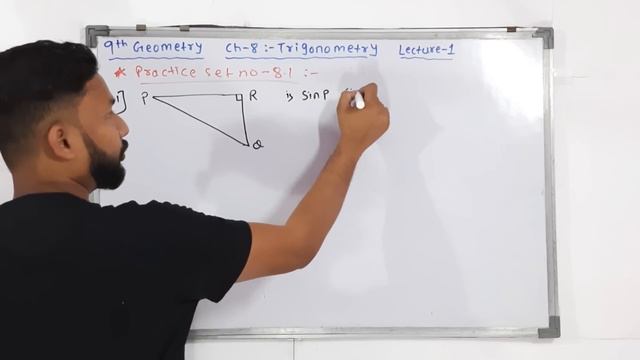 9th Geometry Ch-8 :- Trigonometry Lecture-1
* Practice set no-8.1 :-
P R is Sin P
Q